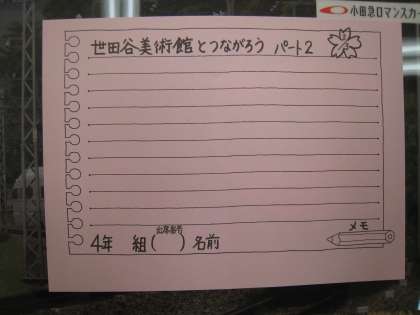 小田急ロマンスカー
世田谷美術館とつながろう パート2
メモ
出席番号
4年 組( )名前